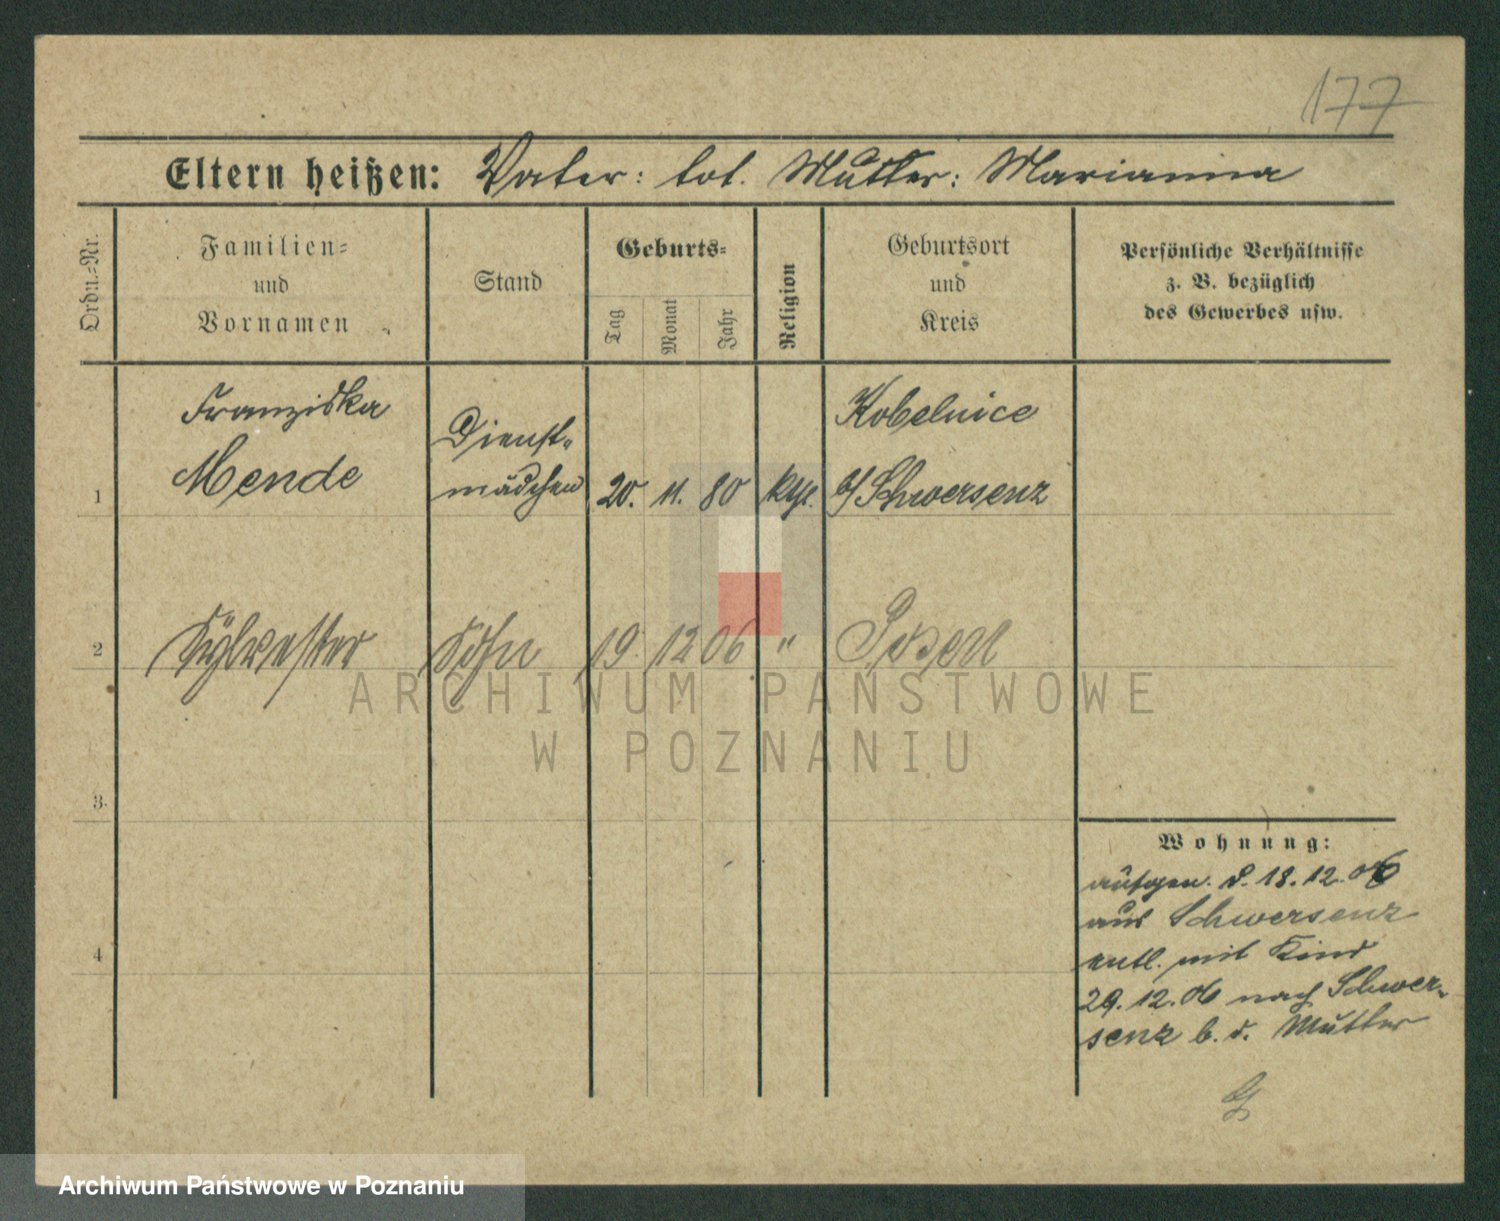 177
Eltern heißen: Vater: tot. Mutter: Marianna
Ordn.-Nr.
Familien- und Vornamen
Stand
Geburts-
Tag
Monat
Jahr
Religion
Geburtsort und Kreis
Persönliche Verhältnisse z. B. bezüglich des Gewerbes usw.
1
Franziska
Mende
Dienst-
mädchen
20. 11. 80
kth.
Kobelnice
b/Schwersenz
2
Sylvester
Sohn
19. 12 06
"
Posen
3.
4
Wohnung:
aufgen. d. 18.12.06
aus Schwersenz
entl. mit Kind
29.12.06 nach Schwer-
senz b. d. Mutter
ARCHIWUM PAŃSTWOWE
W POZNANIU
Archiwum Państwowe w Poznaniu